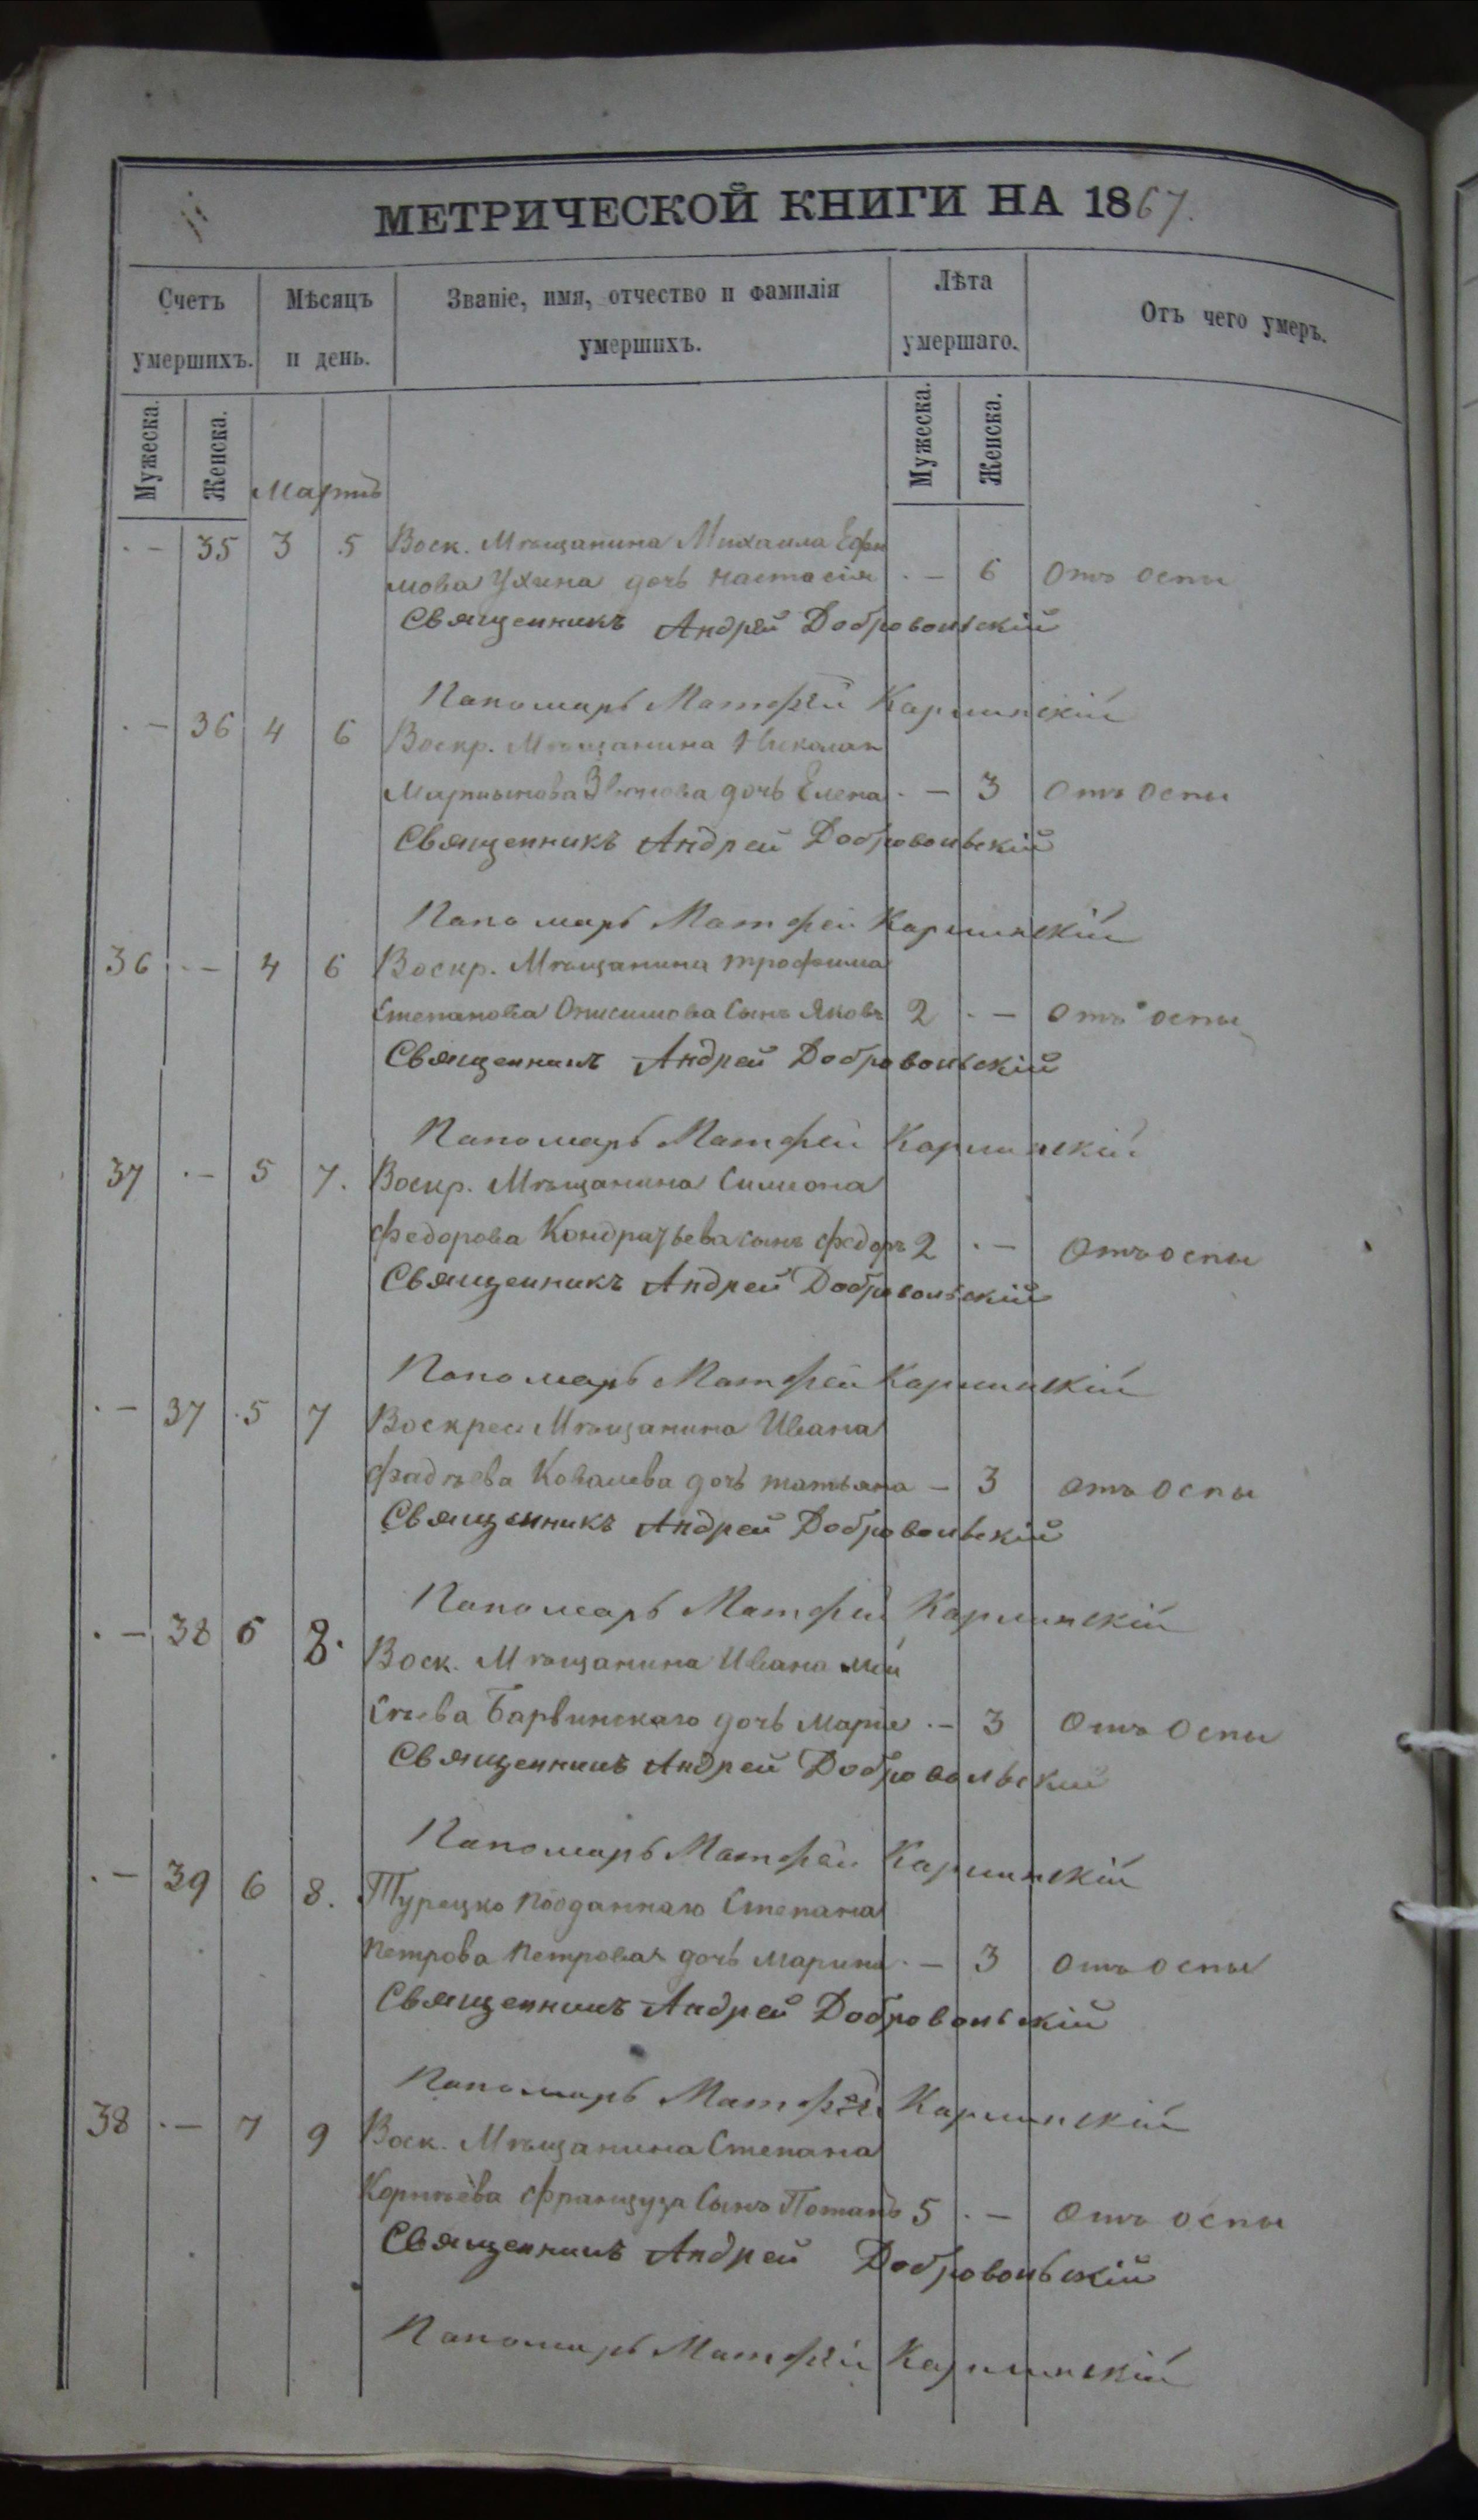 МЕТРИЧЕСКОЙ КНИГИ НА 1867.
Счетъ умершихъ. Мѣсяцъ и день. Званіе, имя, отчество и фамилія умершихъ. Лѣта умершаго. Отъ чего умеръ.
Мужеска. Женска. Мужеска. Женска.
Мартъ
- 35 3 5 Воск. Мѣщанина Михаила Ефи
мова Ухина дочь Настасія - 6 Отъ оспы
Священникъ Андрей Добровольскій
Паномарь Матфей Карминскій
- 36 4 6 Воскр. Мѣщанина Николая
Мартынова дочь Елена - 3 Отъ оспы
Священникъ Андрей Добровольскій
Паномарь Матфей Карминскій
36 - 4 6 Воскр. Мѣщанина Трофима
Степанова Онисимова Сынъ Яковъ 2 - Отъ оспы
Священникъ Андрей Добровольскій
Паномарь Матфей Карминскій
37 - 5 7. Воскр. Мѣщанина Симиона
Федорова Кондратьева сынъ Федоръ 2 - Отъ оспы
Священникъ Андрей Добровольскій
Паномарь Матфей Карминскій
- 37 5 7 Воскрес Мѣщанина Ивана
Фадѣева Ковалева дочь Татьяна - 3 Отъ оспы
Священникъ Андрей Добровольскій
Паномарь Матфей Карминскій
- 38 6 8. Воск. Мѣщанина Ивана Мой
сѣева Барвинскаго дочь Марія - 3 Отъ оспы
Священникъ Андрей Добровольскій
Паномарь Матфей Карминскій
- 39 6 8. Турецко подданнаго Степана
Петрова Петрова дочь Марина - 3 Отъ оспы
Священникъ Андрей Добровольскій
Паномарь Матфей Карминскій
38 - 7 9 Воск. Мѣщанина Степана
Корнѣева Француза Сынъ Потапъ 5 - Отъ оспы
Священникъ Андрей Добровольскій
Паномарь Матфей Карминскій